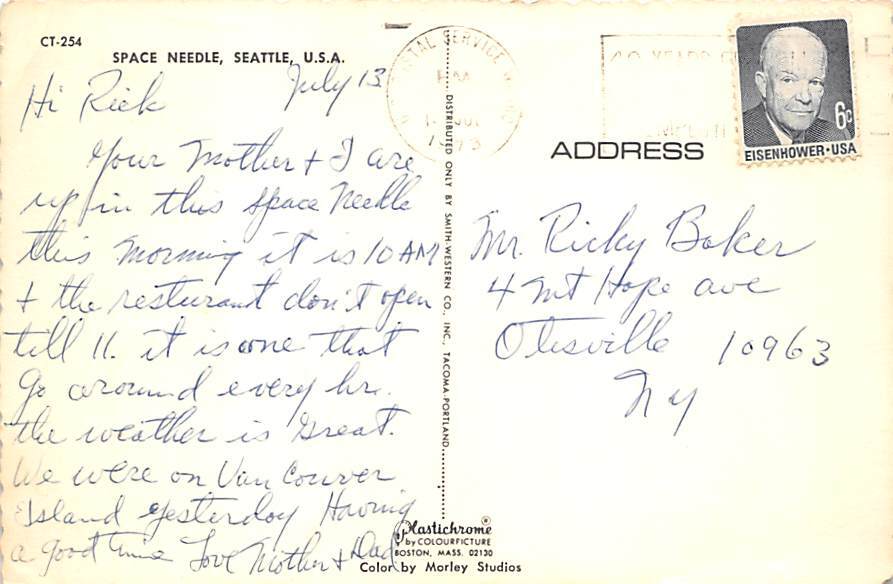 CT-254
SPACE NEEDLE, SEATTLE, U.S.A.
July 13
Hi Rick
Your Mother + I are
up in this Space Needle
this morning it is 10 AM
+ the resturant don't open
till 11. it is one that
Go around every hr.
the weather is Great.
We were on Van Couver
Island yesterday Having
a good time Love Mother + Dad
DISTRIBUTED ONLY BY SMITH-WESTERN CO., INC., TACOMA-PORTLAND
POSTAL SERVICE
PM
EISENHOWER·USA
6c
ADDRESS
Mr. Ricky Baker
4 Mt Hope ave
Otisville 10963
Ny
Plastichrome ®
by COLOURPICTURE
BOSTON, MASS. 02130
Color by Morley Studios